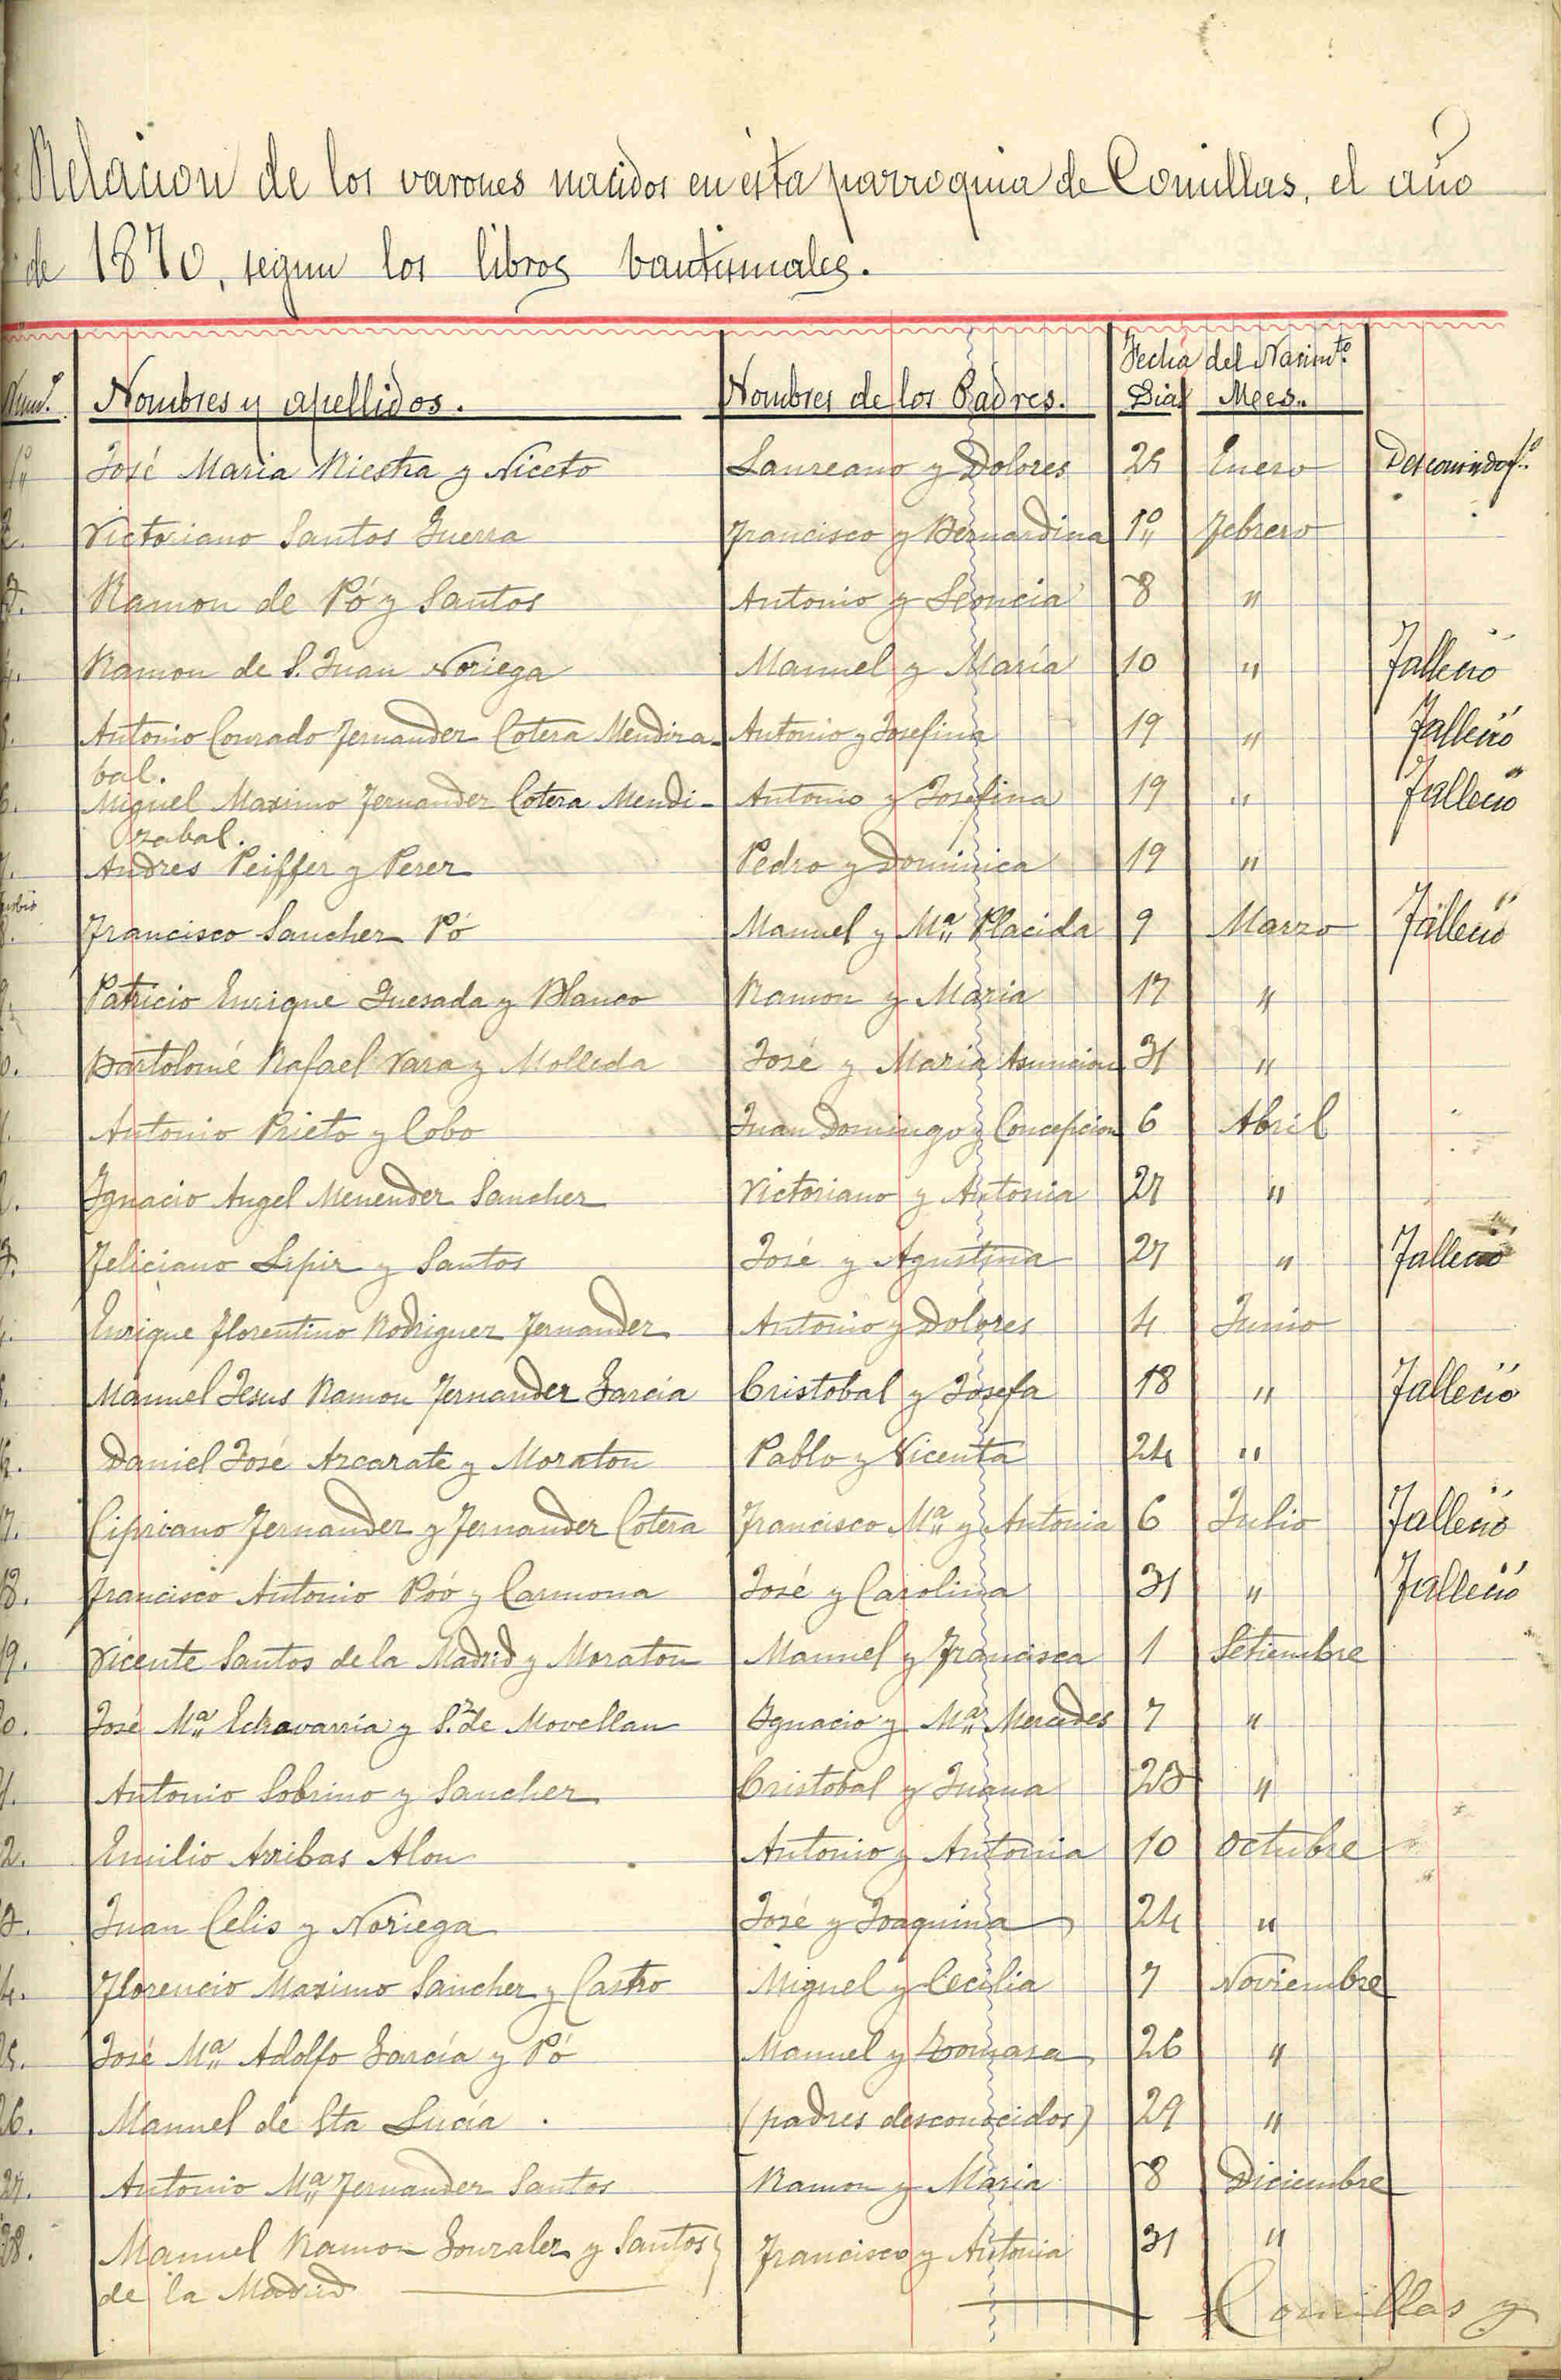 Relacion de los varones nacidos en esta parroquia de Comillas, el año
de 1870, segun los libros bautismales.
Fecha del Nacimto.
Num.º Nombres y apellidos. Nombres de los Padres. Dias Mees.
1º José Maria Riestra y Niceto Laureano y Dolores 25 Enero
2. Victoriano Santos Guerra Francisco y Bernardina 1º Febrero
3. Ramon de Pó y Santos Antonio y Leoncia 8 "
4. Ramon de S. Juan Noriega Manuel y María 10 " Falleció
5. Antonio Conrado Fernandez Cotera Mendiza- Antonio y Josefina 19 " Falleció
bal.
6. Miguel Maximo Fernandez Cotera Mendi- Antonio y Josefina 19 " Falleció
zabal.
7. Andres Peiffer y Perez Pedro y Dominica 19 "
8. Francisco Sanchez Pó Manuel y Mª Placida 9 Marzo Falleció
9. Patricio Enrique Quesada y Blanco Ramon y Maria 17 "
0. Bartolomé Rafael Vara y Molleda José y Maria Asuncion 31 "
1. Antonio Prieto y Cobo Juan Domingo y Concepcion 6 Abril
2. Ygnacio Angel Menendez Sanchez Victoriano y Antonia 27 "
3. Feliciano Sipir y Santos José y Agustina 27 " Falleció
4. Enrique Florentino Rodriguez Fernandez Antonio y Dolores 4 Junio
5. Manuel Jesus Ramon Fernandez García Cristobal y Josefa 18 " Falleció
6. Daniel José Azcarate y Moraton Pablo y Vicenta 24 "
7. Cipriano Fernandez y Fernandez Cotera Francisco Mª y Antonia 6 Julio Falleció
18. Francisco Antonio Póo y Carmona José y Carolina 31 " Falleció
19. Vicente Santos de la Madrid y Moraton Manuel y Francisca 1 Setiembre
0. José Mª Echavarría y S.z de Movellan Ygnacio y Mª Mercedes 7 "
1. Antonio Sobrino y Sanchez Cristobal y Juana 23 "
2. Emilio Arribas Alon Antonio y Antonia 10 Octubre
3. Juan Celis y Noriega José y Joaquina 24 "
4. Florencio Maximo Sanchez y Castro Miguel y Cecilia 7 Noviembre
25. José Mª Adolfo García y Pó Manuel y Tomasa 26 "
26. Manuel de Sta Lucía. (padres desconocidos) 29 "
27. Antonio Mª Fernandez Santos Ramon y Maria 8 Diciembre
28. Manuel Ramon Gonzalez y Santos Francisco y Antonia 31 "
de la Madrid
Comillas y